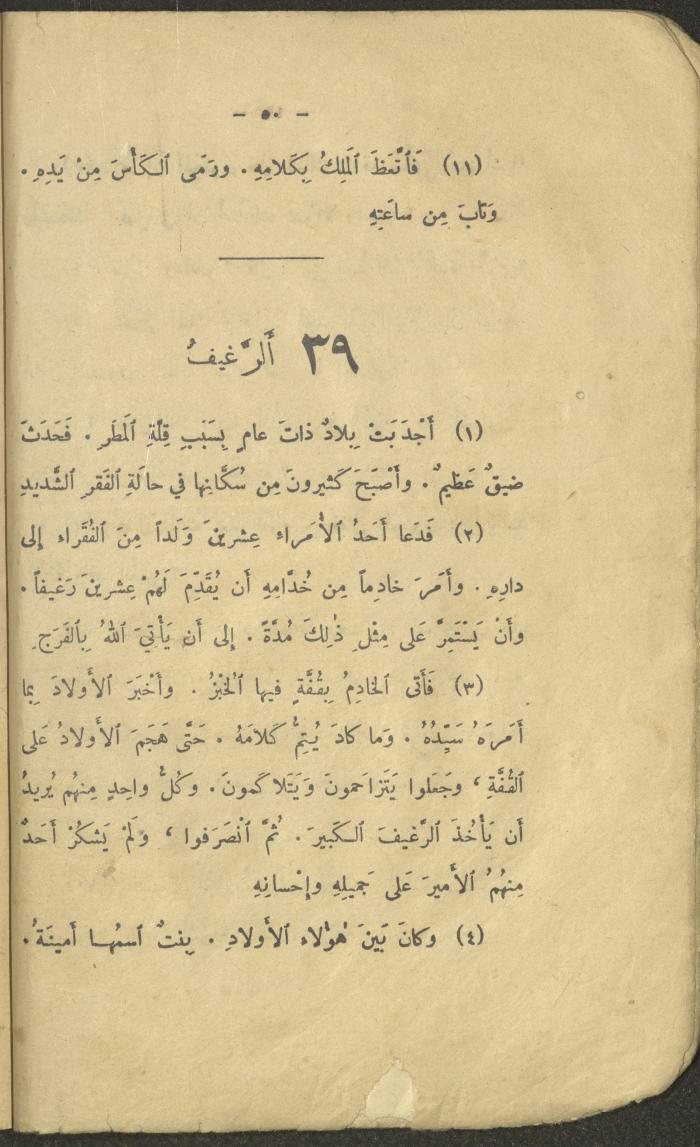 - ٥٠ -
(١١) فَٱتَّعَظَ ٱلمَلِكُ بِكَلامِهِ. ورَمَى ٱلكَأْسَ مِنْ يَدِهِ.
وَتابَ مِن ساعَتِهِ
٣٩ أَلرَّغيفُ
(١) أَجْدَبَتْ بِلادٌ ذاتَ عامٍ بِسَبَبِ قِلَّةِ ٱلمَطَرِ. فَحَدَثَ
ضيقٌ عَظيمٌ. وأَصْبَحَ كَثيرونَ مِن سُكَّانِها في حالَةِ ٱلفَقرِ ٱلشَّديدِ
(٢) فَدَعا أَحَدُ ٱلأُمَراء عِشرينَ وَلَداً مِنَ ٱلفُقَراء إِلى
دارِهِ. وأَمَرَ خادِماً مِن خُدَّامِهِ أَن يُقَدِّمَ لَهُمْ عِشرينَ رَغيفاً.
وأَنْ يَسْتَمِرَّ عَلى مِثْلِ ذٰلِكَ مُدَّةً. إِلى أَن يَأْتِيَ ٱللهُ بِٱلفَرَجِ
(٣) فَأَتى ٱلخادِمُ بِقُفَّةٍ فيها ٱلخُبْزُ. وأَخْبَرَ ٱلأَولادَ بِما
أَمَرَهُ سَيِّدُهُ. وَما كادَ يُتِمُّ كَلامَهُ. حَتَّى هَجَمَ ٱلأَولادُ عَلى
ٱلقُفَّةِ، وجَعَلوا يَتَزاحَمونَ وَيَتَلاكَمونَ. وكُلُّ واحِدٍ مِنهُم يُريدُ
أَن يَأْخُذَ ٱلرَّغيفَ ٱلكَبيرَ. ثُمَّ ٱنْصَرَفوا، وَلَمْ يَشكُرْ أَحَدٌ
مِنهُمُ ٱلأَميرَ عَلى جَميلِهِ وإِحْسانِهِ
(٤) وكانَ بَينَ هٰؤلاء ٱلأَولادِ. بِنتٌ ٱسمُها أَمينَةُ.